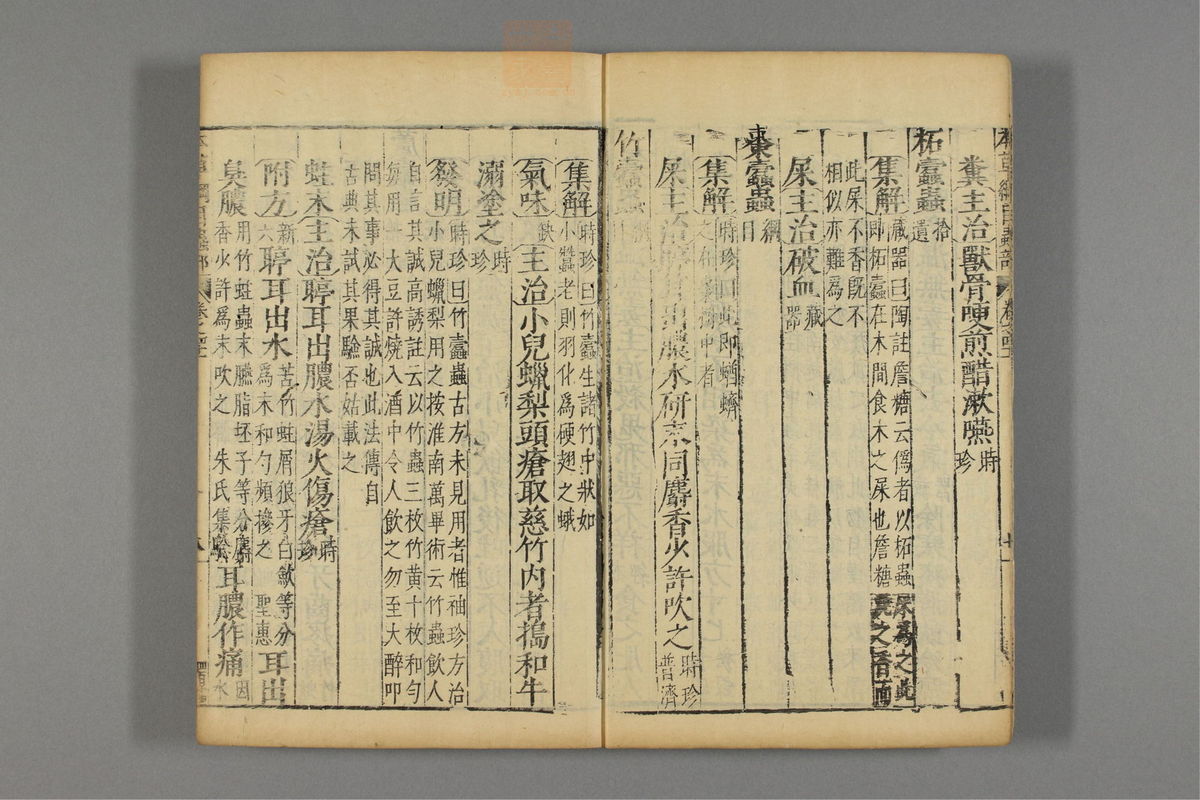 糞主治獸骨哽煎醋漱嚥時珍
柘蠹蟲拾遺
集解藏器曰陶註詹糖云僞者以柘蟲屎爲之此
即柘蠹在木間食木之屎也詹糖燒之香而
此屎不香旣不
相似亦難爲之
屎主治破血藏器
棗蠹蟲綱目
集解時珍曰此即蠐螬
之在棗樹中者
屎主治聤耳出膿水研末同麝香少許吹之時珍普濟
竹蠹蟲
集解時珍曰竹蠹生諸竹中狀如
小蠶老則羽化爲硬翅之蛾
氣味缺主治小兒蠟梨頭瘡取慈竹内者搗和牛
溺塗之時珍
發明時珍曰竹蠹蟲古方未見用者惟袖珍方治
小兒蠟梨用之按淮南萬畢術云竹蟲飲人
自言其誠高誘註云以竹蟲三枚竹黄十枚和勻
每用一大豆許燒入酒中令人飲之勿至大醉叩
問其事必得其誠也此法傳自
古典未試其果驗否姑載之
蛀末主治聤耳出膿水湯火傷瘡時珍
附方新六聤耳出水苦竹蛀屑狼牙白斂等分
爲末和勻頻摻之聖惠耳出
臭膿用竹蛀蟲末臙脂坯子等分麝
香少許爲末吹之朱氏集驗耳膿作痛因
水